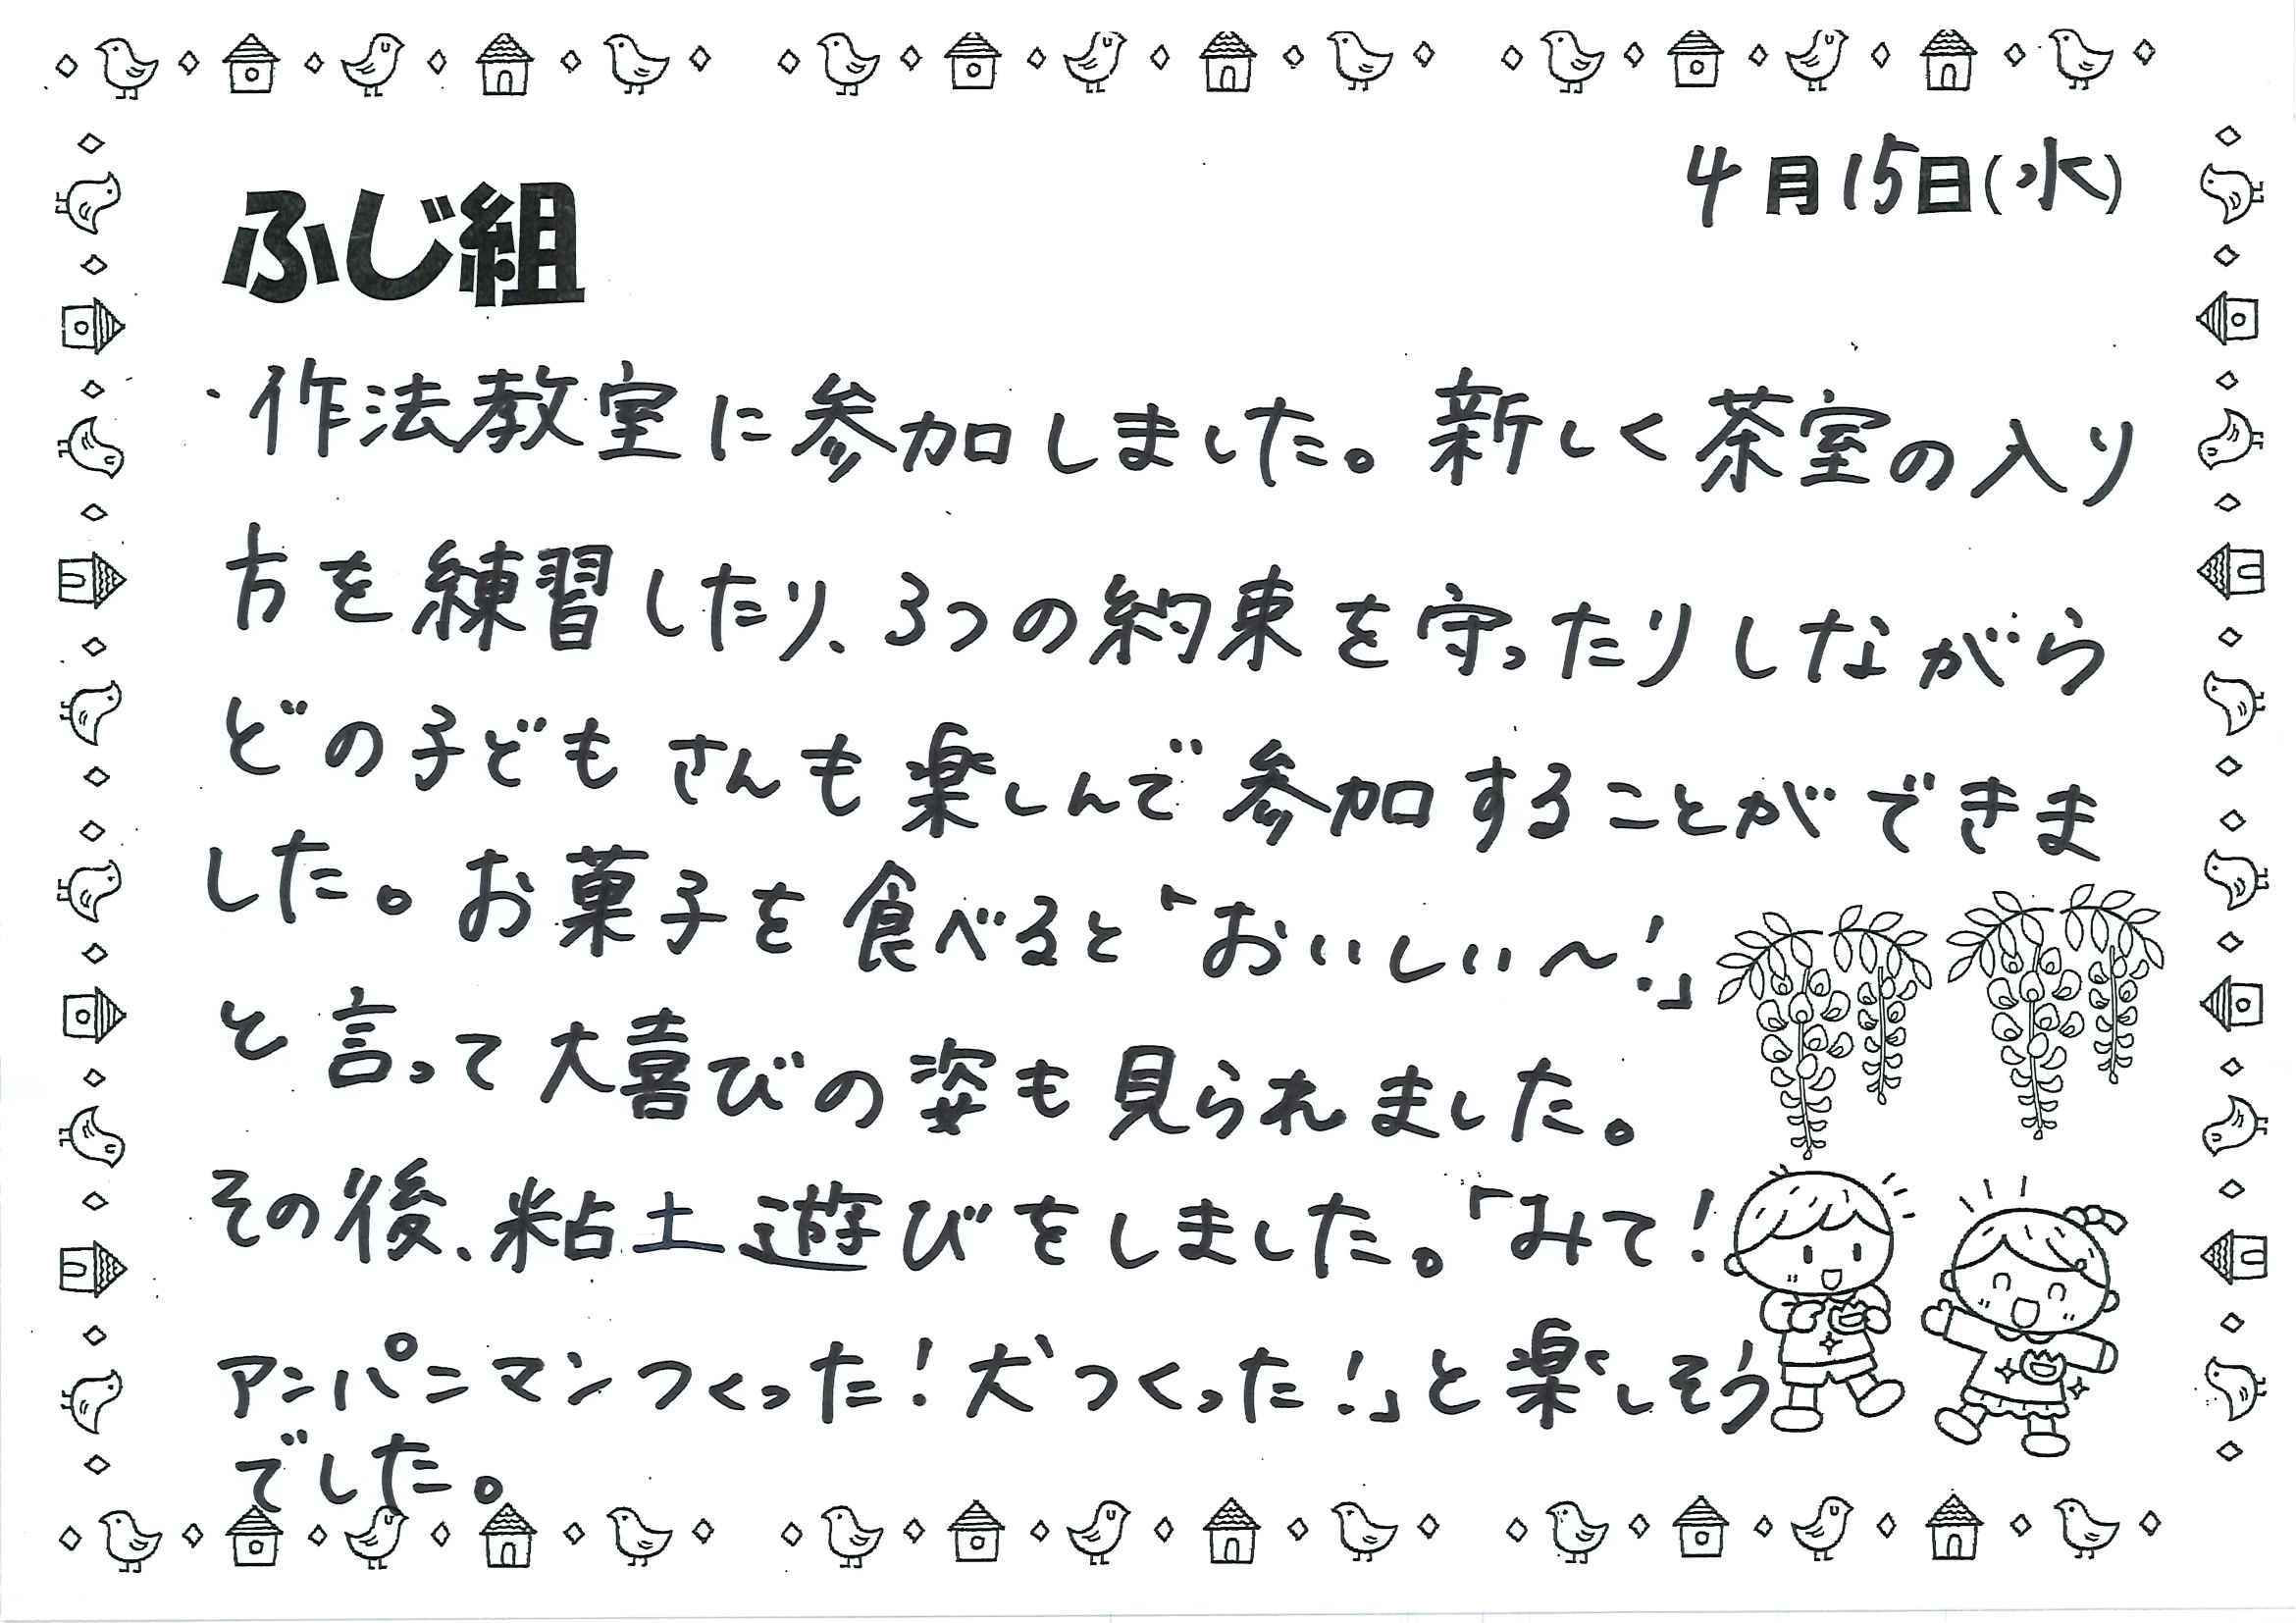 4月15日(水)
ふじ組
・作法教室に参加しました。新しく茶室の入り
方を練習したり、3つの約束を守ったりしながら
どの子どもさんも楽しんで参加することができま
した。お菓子を食べると「おいしい〜!」
と言って大喜びの姿も見られました。
その後、粘土遊びをしました。「みて!
アンパンマンつくった!犬つくった!」と楽しそう
でした。